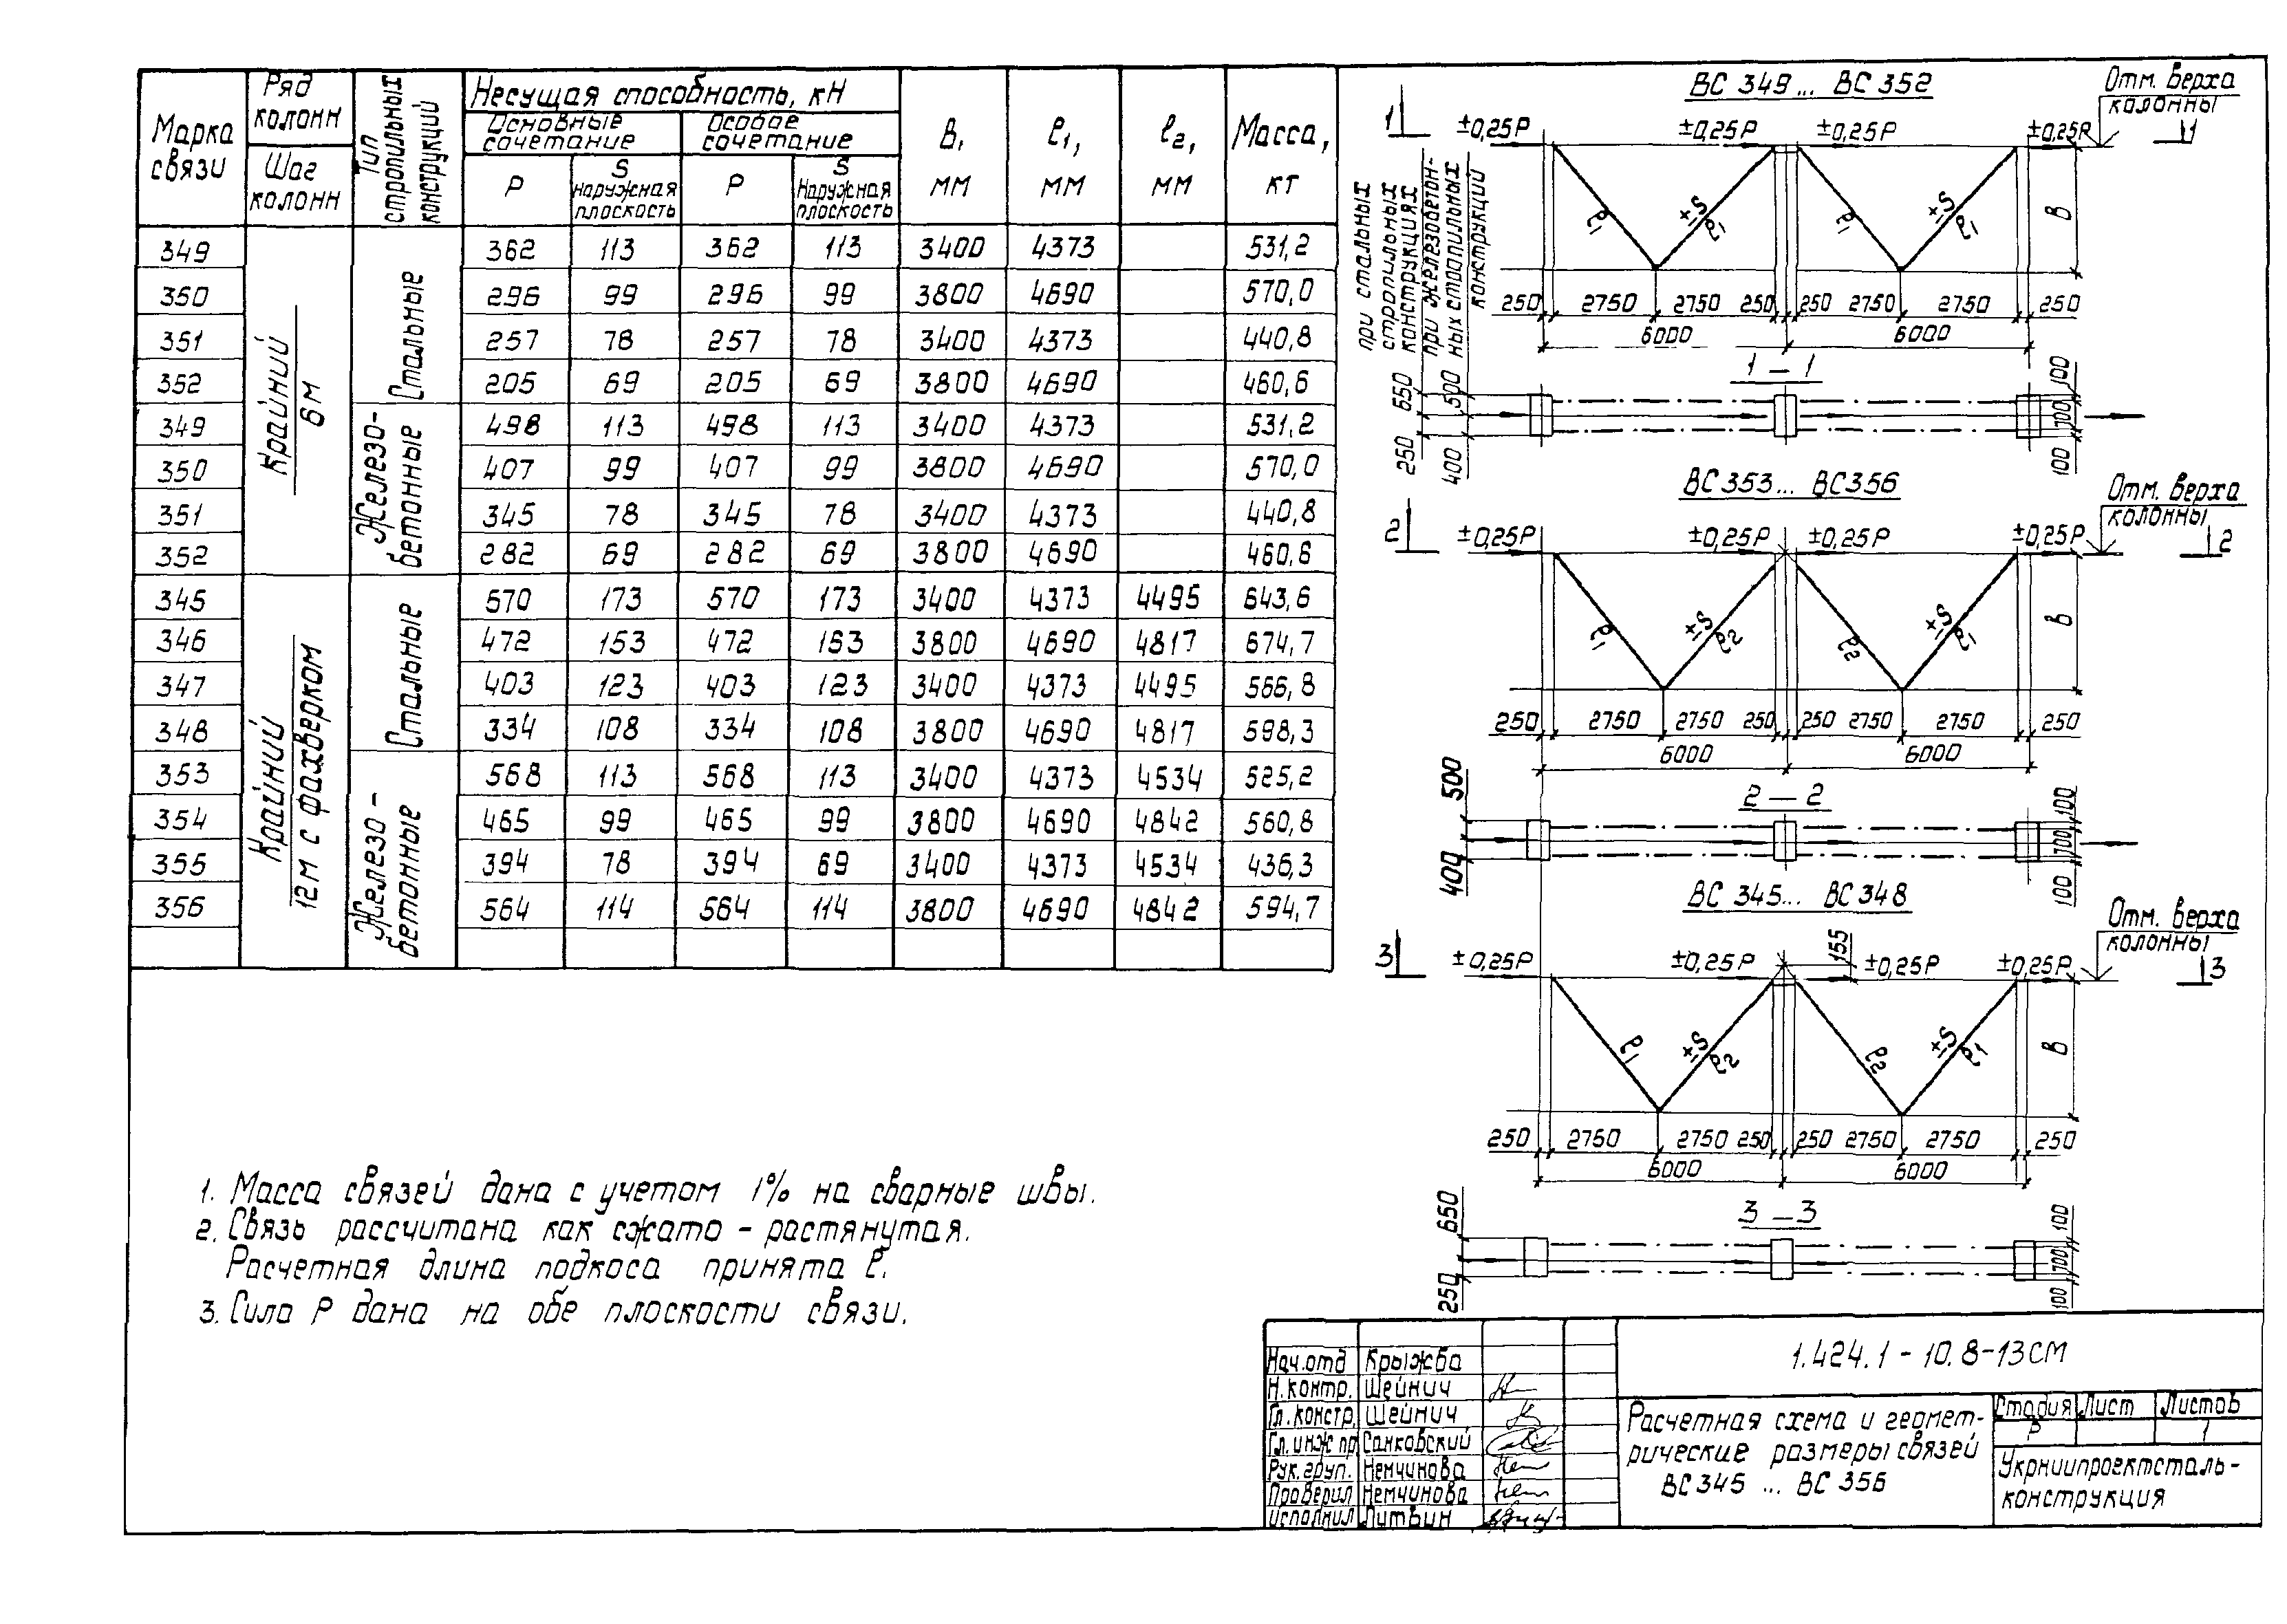 Марка связи
Ряд колонн
Шаг колонн
Тип стропильных конструкций
Несущая способность, кН
Основные сочетание
Особое сочетание
P
S наружная плоскость
P
S Наружная плоскость
В, мм
ℓ1, мм
ℓ2, мм
Масса, кг
Крайний 6м
Стальные
349 362 113 362 113 3400 4373 531,2
350 296 99 296 99 3800 4690 570,0
351 257 78 257 78 3400 4373 440,8
352 205 69 205 69 3800 4690 460,6
Железо-
бетонные
349 498 113 498 113 3400 4373 531,2
350 407 99 407 99 3800 4690 570,0
351 345 78 345 78 3400 4373 440,8
352 282 69 282 69 3800 4690 460,6
Крайний
12м с фахверком
Стальные
345 570 173 570 173 3400 4373 4495 643,6
346 472 153 472 153 3800 4690 4817 674,7
347 403 123 403 123 3400 4373 4495 566,8
348 334 108 334 108 3800 4690 4817 598,3
Железо-
бетонные
353 568 113 568 113 3400 4373 4534 525,2
354 465 99 465 99 3800 4690 4842 560,8
355 394 78 394 69 3400 4373 4534 436,3
356 564 114 564 114 3800 4690 4842 594,7
1. Масса связей дана с учетом 1% на сварные швы.
2. Связь рассчитана как сжато-растянутая.
Расчетная длина подкоса принята ℓ.
3. Сила P дана на обе плоскости связи.
ВС 349... ВС 352
Отм. верха
колонны
1 1
±0,25P ±0,25P ±0,25P ±0,25P
ℓ1 ±S ℓ1 ℓ1 ±S ℓ1 В
250 2750 2750 250 250 2750 2750 250
6000 6000
при стальных
стропильных
конструкциях
при железобетон-
ных стропильных
конструкций
1 – 1
650 500
250 400
100 700 100
ВС 353... ВС 356
Отм. верха
колонны
2 2
±0,25P ±0,25P ±0,25P ±0,25P
ℓ1 ±S ℓ2 ℓ2 ±S ℓ1 В
250 2750 2750 250 250 2750 2750 250
6000 6000
2 – 2
500
400
100 700 100
ВС 345... ВС 348
Отм. верха
колонны
3 3
155
±0,25P ±0,25P ±0,25P ±0,25P
ℓ1 ±S ℓ2 ℓ2 ±S ℓ1 В
250 2750 2750 250 250 2750 2750 250
6000 6000
3 – 3
650
250
100 700 100
Нач.отд Крыжба
Н.контр. Шейнич
Гл.констр. Шейнич
Гл.инж пр Санковский
Рук.груп. Немчинова
Проверил Немчинова
исполнил Литвин
1.424.1-10.8-13СМ
Расчетная схема и геомет-
рические размеры связей
ВС 345 ... ВС 356
Стадия Лист Листов
Р 1
Укрниипроектсталь-
конструкция